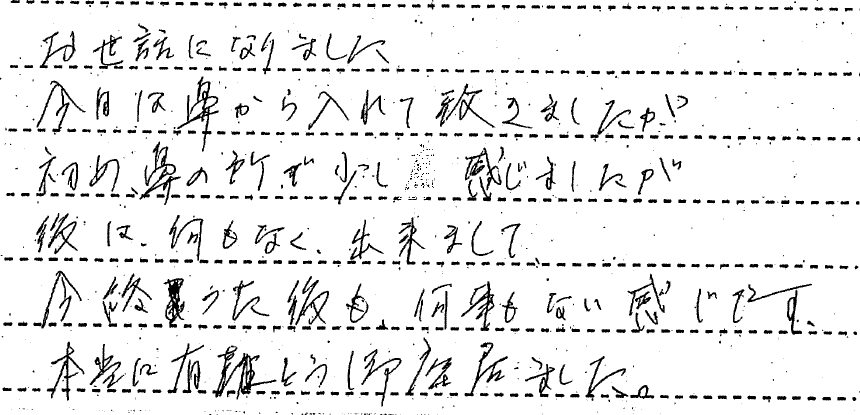 お世話になりました
今日は鼻から入れて致きましたが
初め、鼻の所で少し 感じましたが
後は、何もなく、出来まして、
今終った後も、何事もない感じです、
本当に有難とう御座居ました。